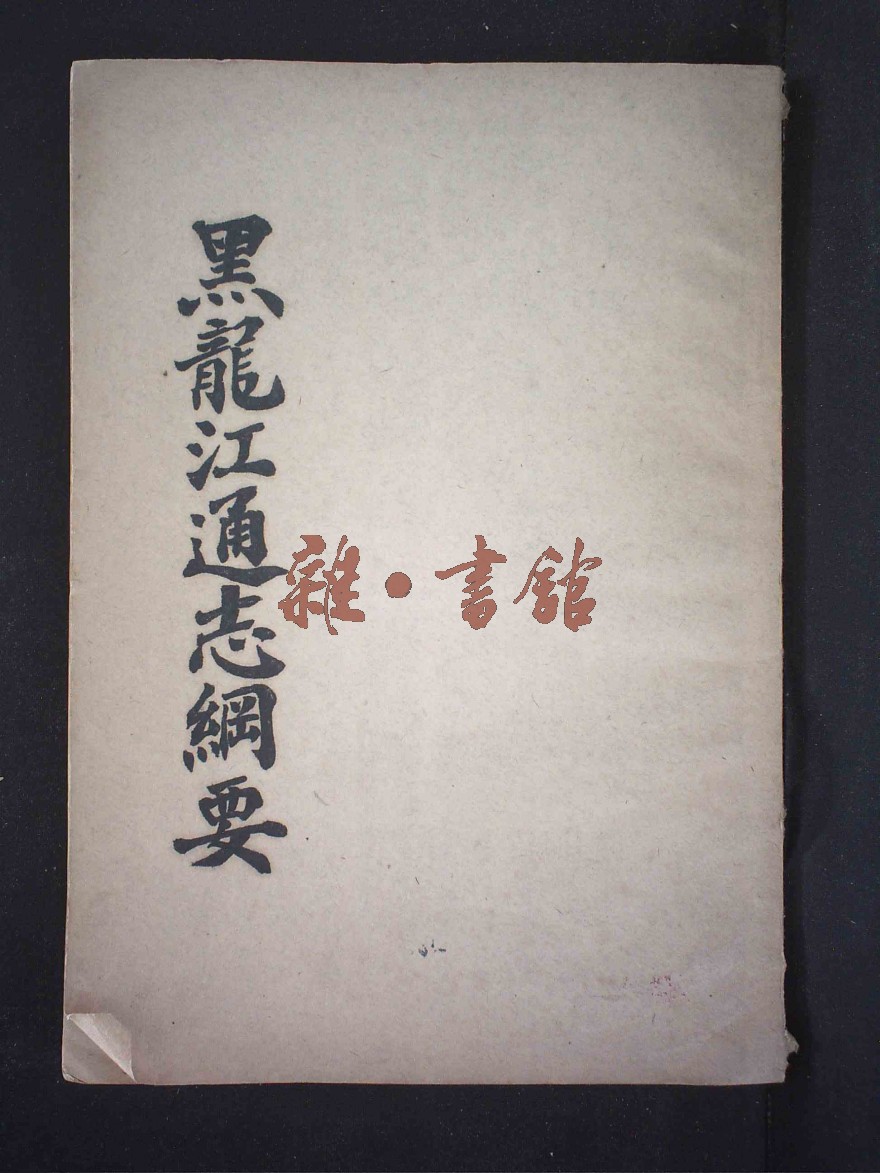 黑龍江通志綱要
雜·書館